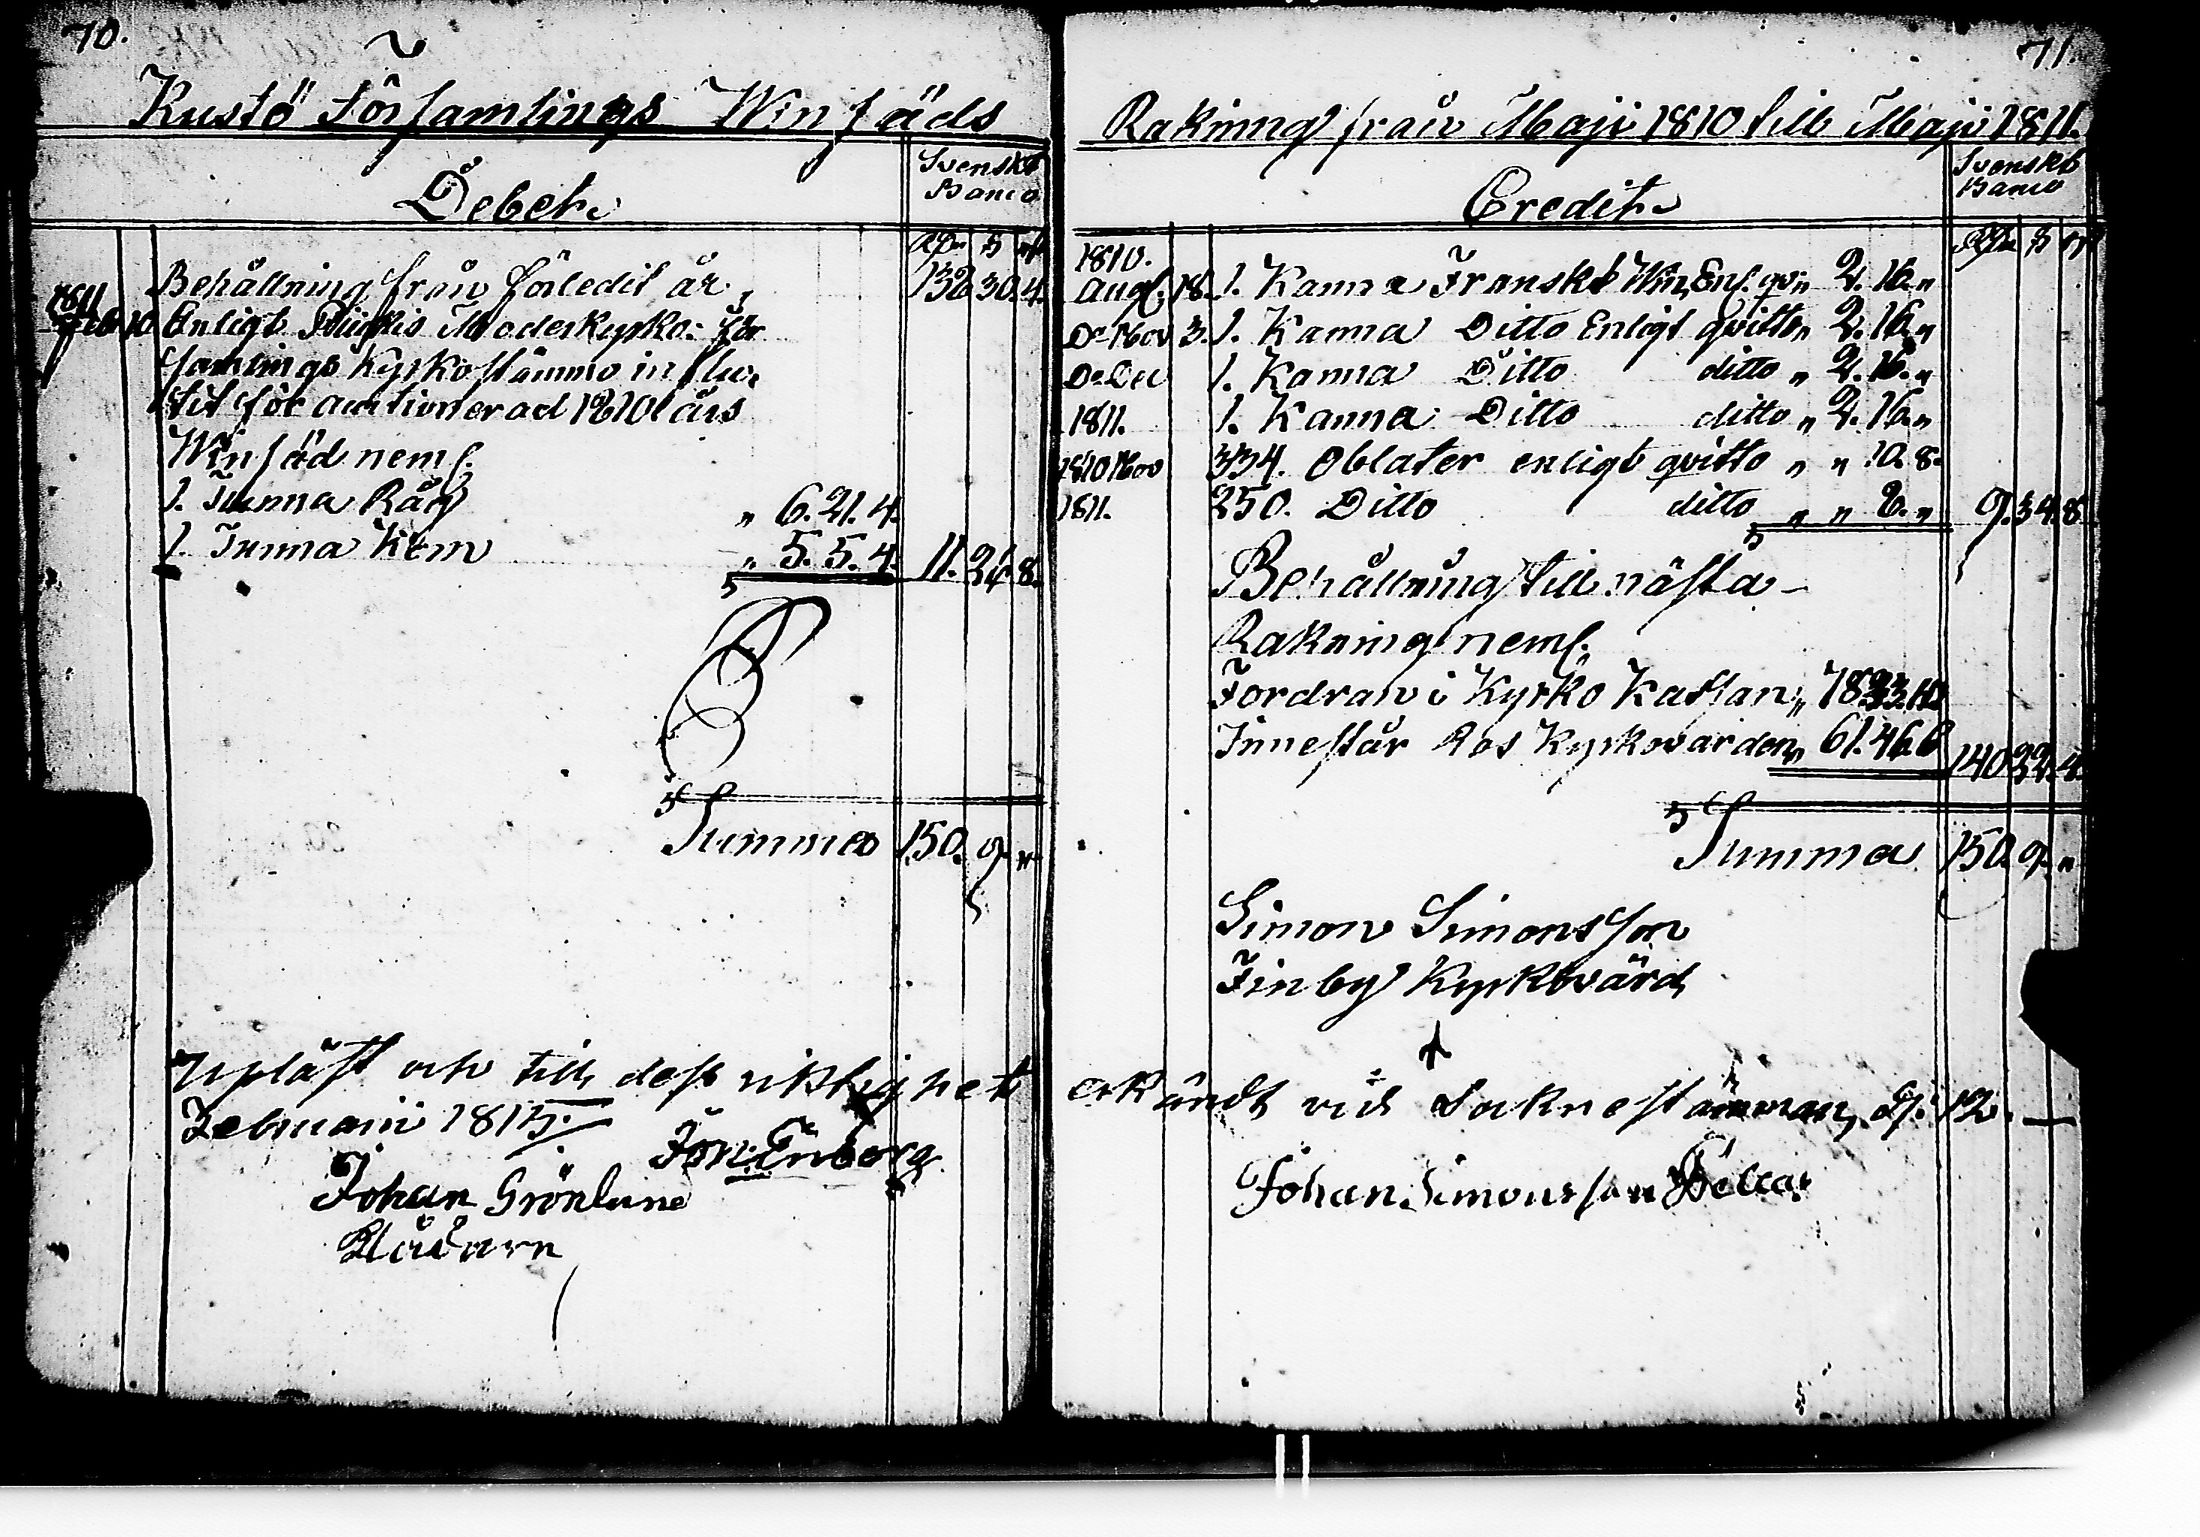 70.
Kustö Församlings Winsäds
Debet.
Svenskt
Banco
Rdr ß rst
Behållning från förledit år 138 30. 4.
1811 Feb 10 Enligt Piikkis Moderkyrko: För
samlings Kyrkostämmo influ
tit för auctionerad 1810 års
Winsäd neml.
1. Tunna Råg „ 6. 21. 4.
1. Tunna Korn „ 5. 5. 4. 11. 26. 8.
Summa 150. 9. „
Upläst och till dess riktighet
Februarii 1815.
Johan Grönlund
71.
Räkning från Maji 1810 till Maji 1811.
Credit
Svenskt
Banco
Rdr ß rst
1810.
Aug. 18. 1. Kanna Franskt Win, Enl. qv. „ 2. 16. „
Do Nov 3. 1. Kanna Ditto Enligt qvitto „ 2. 16. „
Do Dec 1. Kanna Ditto ditto „ 2. 16. „
1811. 1. Kanna Ditto ditto „ 2. 16. „
1810 Nov 334. Oblater enligt qvitto „ „ 10. 8.
1811. 250. Ditto ditto „ „ 8. „ 9. 34. 8.
Behållning till nästa
Räkning neml.
Fordran i Kyrko Kassan „ 78.
Innestår hos Kyrkovärden „ 61. 46. 6 140. 22. 4.
Summa 150. 9. „
Simon Simonsson
Finby Kyrkovärd
erkändt vid Soknestämman, d. 12.
Johan Simonsson